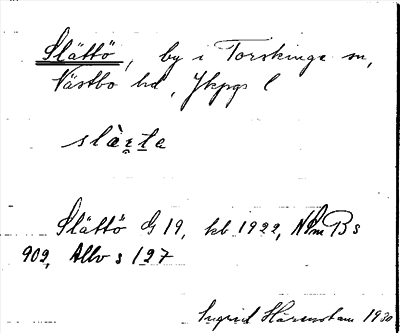 Slättö, by i Torskinge sn,
Västbo hd, Jkpgs l
slàtte
Slättö G 19, kb 1922, NSm B s
902, Allv s 127
Ingrid Härenstam 1930